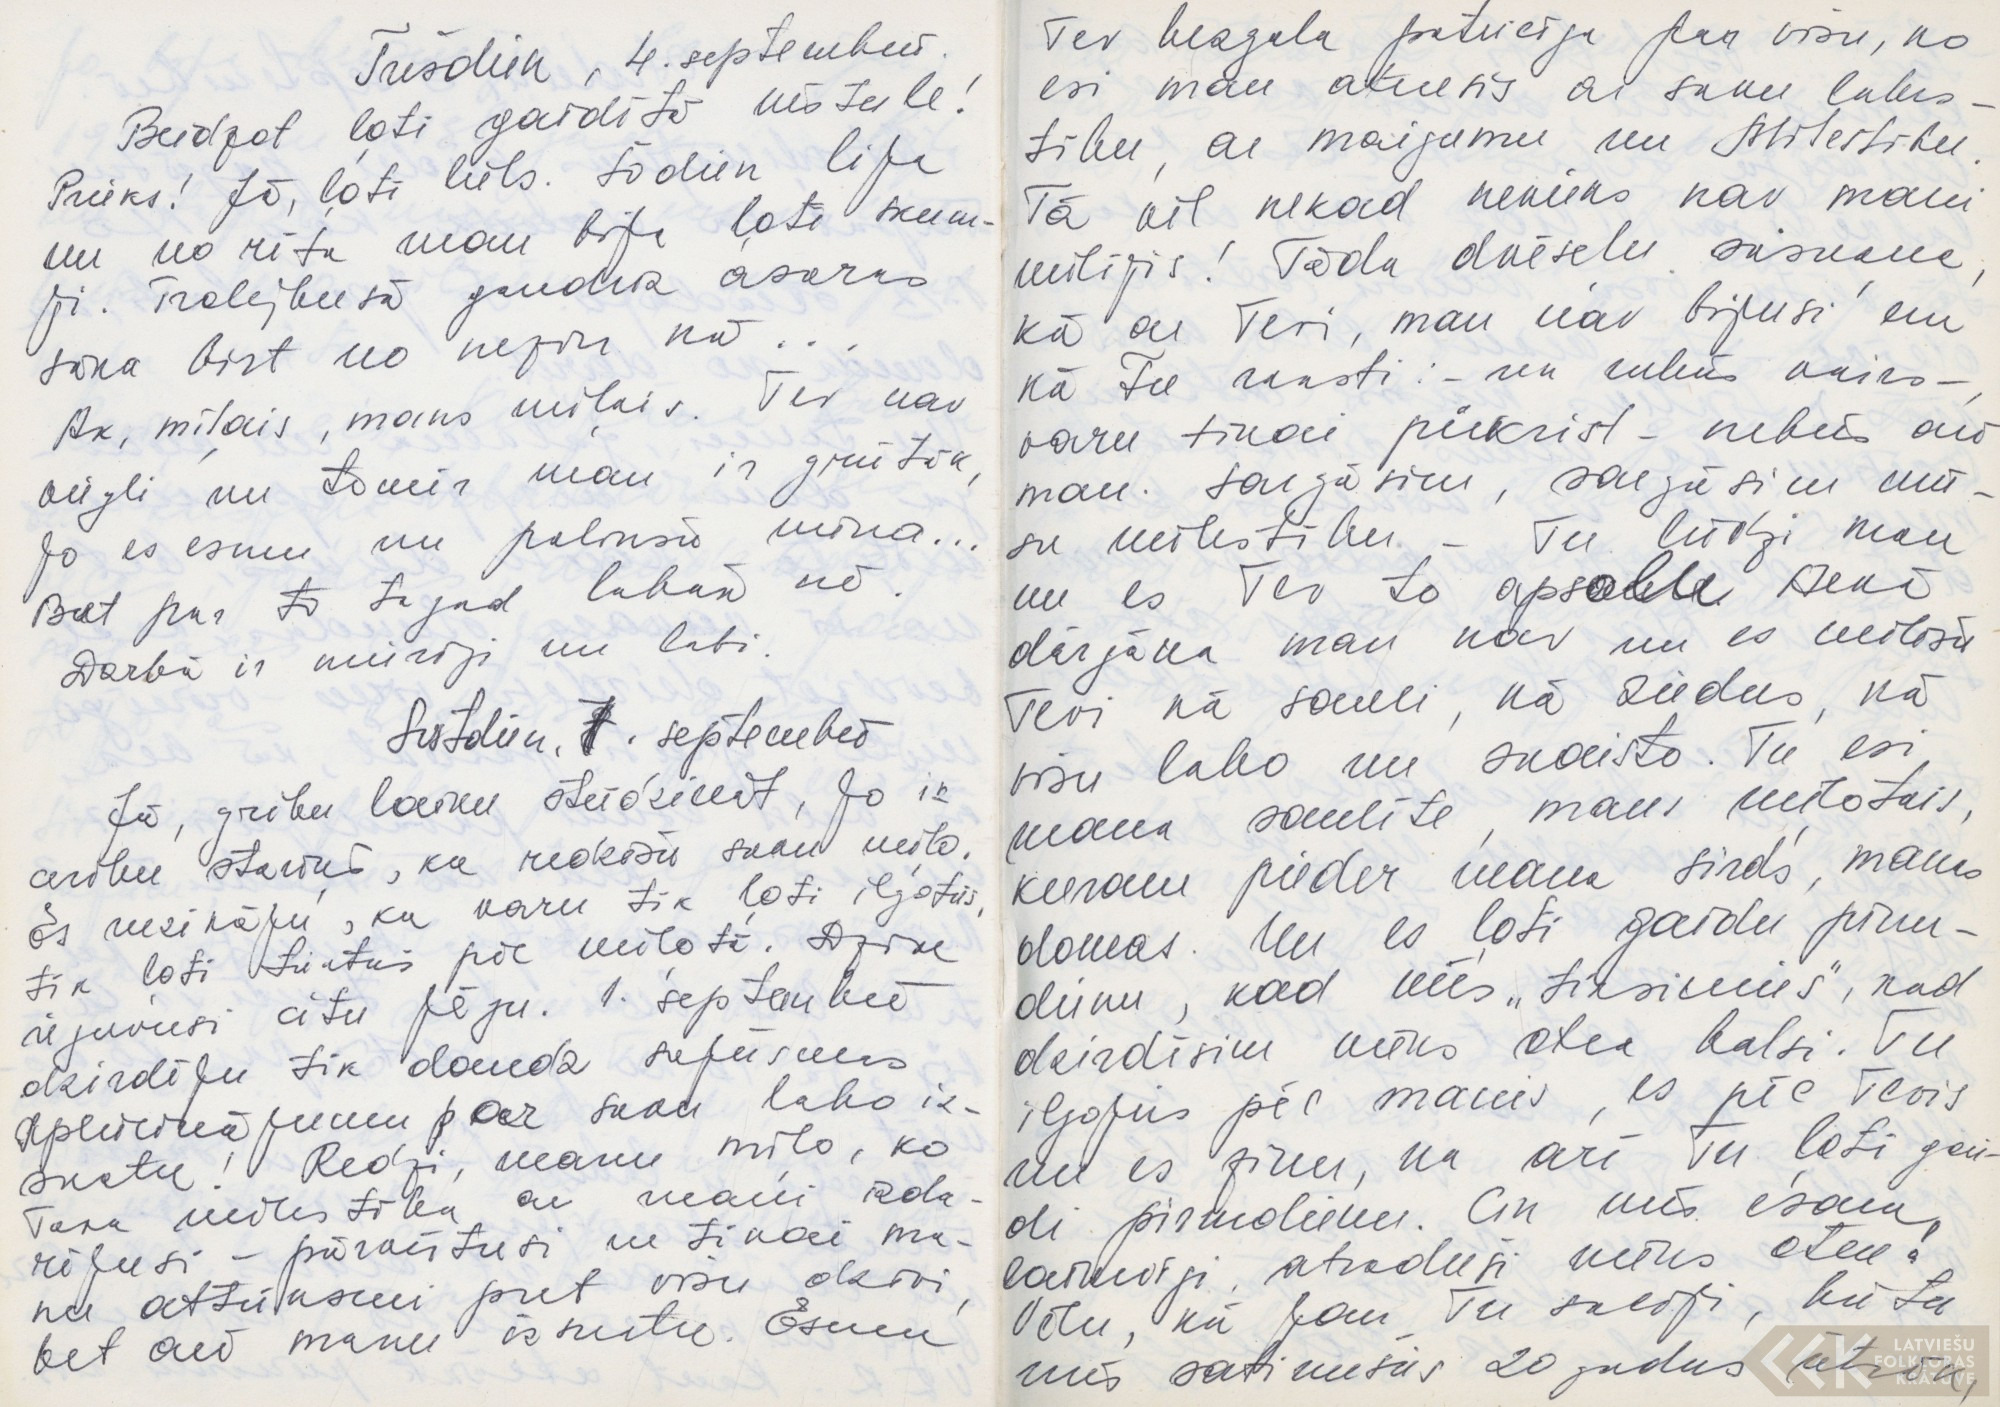 Trešdien, 4. septembrī.
Beidzot ļoti gaidītā vēstule!
Prieks! Jā, ļoti liels. Šodien lija
un no rīta man bija ļoti skum-
ji. Trolejbusā gandrīz asaras
sāka birt no nezin kā...
Ak, mīļais, mans mīļais. Tev nav
viegli un tomēr man ir grūtāk,
jo es esmu un palikšu viena...
Bet par to tagad labāk nē.
Darbā ir mierīgi un labi.
Sestdien, 7. septembrī
Jā, gribu laiku steidzināt, jo ik
cerību stariņš, ka redzēšu savu mīļo.
Es nezināju, ka varu tik ļoti ilgoties,
tik ļoti tiekties pēc mīļotā. Dzīve
ieguvusi citu jēgu. 1. septembrī
dzirdēju tik daudz sajūsmas
apliecinājumu par savu labo iz-
skatu! Redzi, manu mīļo, ko
Tava mīlestība ar mani izda-
rījusi – pārvērtusi ne tikai ma-
nu attieksmi pret visu dzīvi,
bet arī manu izskatu. Esmu
Tev bezgala pateicīga par visu, ko
esi man atnesis ar savu labes-
tību, ar maigumu un Mīlestību.
Tā vēl nekad neviens nav mani
mīlējis! Tāda dvēseļu saskaņa,
kā ar Tevi, man nav bijusi un
kā Tu raksti: – un nebūs vairs –,
varu tikai piekrist – nebūs arī
man. Sargāsim, sargāsim mū-
su mīlestību – Tu lūdzi man
un es Tev to apsolu. Nekā
dārgāka man nav un es mīlēšu
Tevi kā sauli, kā ziedus, kā
visu labo un skaisto. Tu esi
mana saulīte, mans mīļotais,
kuram pieder mana sirds, manas
domas. Un es ļoti gaidu pirm-
dienu, kad mēs „tiksimies", kad
dzirdēsim viens otra balsi. Tu
ilgojies pēc manis, es pēc Tevis
un es zinu, ka arī Tu ļoti gai-
di pirmdienu. Cik mēs esam
laimīgi, atraduši viens otru!
Vēlu, kā jau Tu sacīji, būtu
mēs satikušies 20 gadus ātrāk,